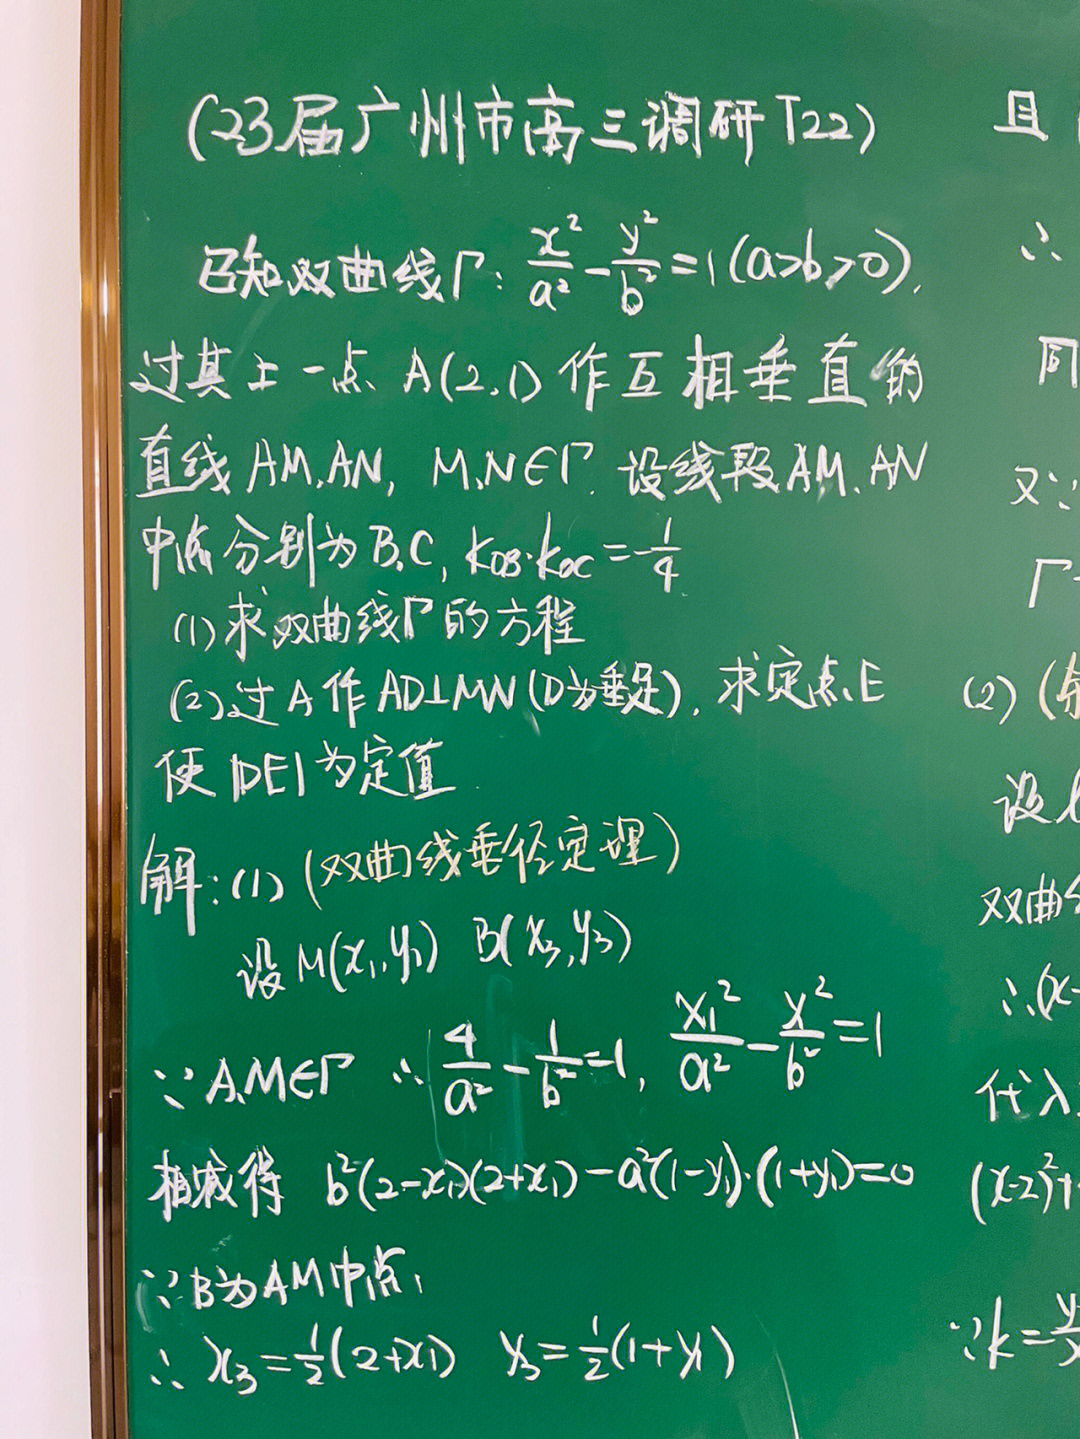 (23届广州市高三调研T22)
已知双曲线Γ: x²/a² - y²/b² = 1 (a>b>0),
过其上一点 A(2,1) 作互相垂直的
直线 AM,AN, M,N∈Γ. 设线段AM、AN
中点分别为B,C, k_OB·k_OC = -1/4
(1) 求双曲线Γ的方程
(2) 过A作AD⊥MN(D为垂足), 求定点E
使|DE|为定值.
解:(1) (双曲线垂径定理)
设M(x₁,y₁) B(x₃,y₃)
∵A,M∈Γ ∴ 4/a² - 1/b² = 1, x₁²/a² - y²/b² = 1
相减得 b²(2-x₁)(2+x₁) - a²(1-y₁)·(1+y₁) = 0
∵B为AM中点,
∴ x₃ = 1/2(2+x₁) y₃ = 1/2(1+y₁)
且
∴
同
又∵
Γ
(2) (
设l
双曲
∴(x-
代入
(x-2)²+
∵k = y